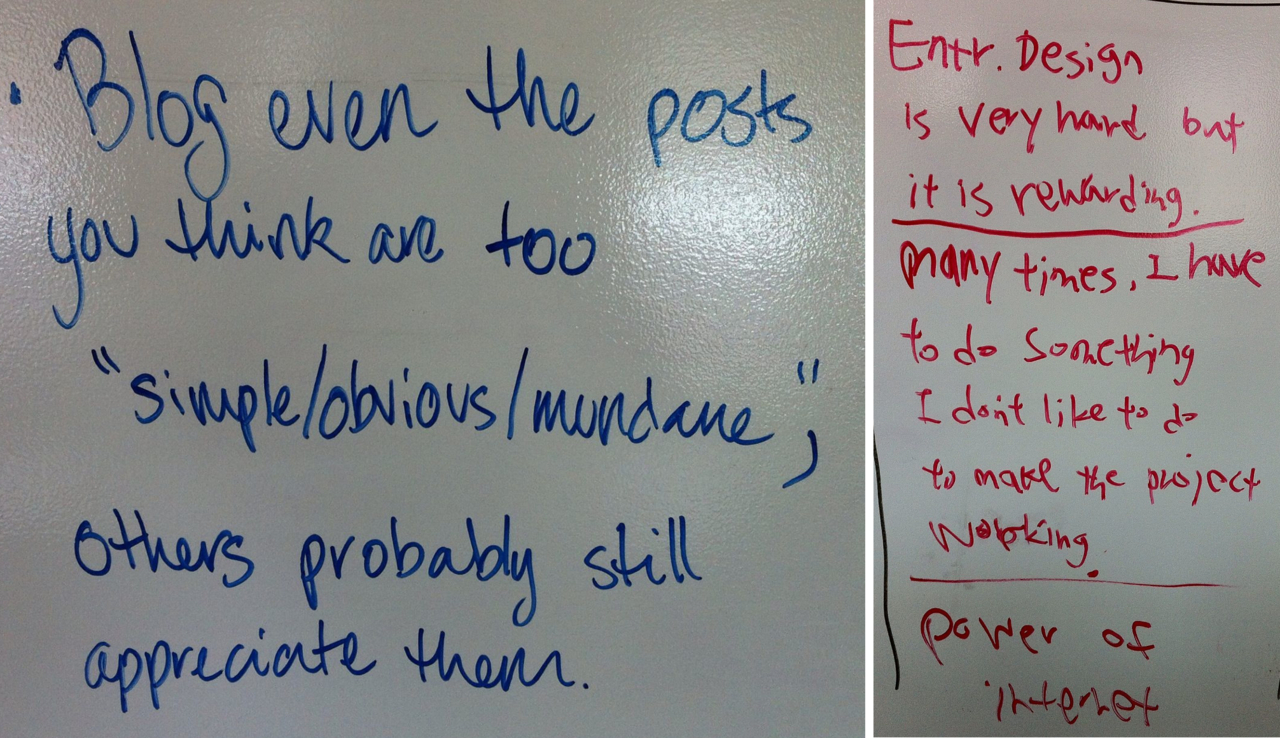 · Blog even the posts
you think are too
"simple/obvious/mundane",
others probably still
appreciate them.
Entr. Design
is very hard but
it is rewarding.
many times, I have
to do something
I don't like to do
to make the project
working.
power of
internet